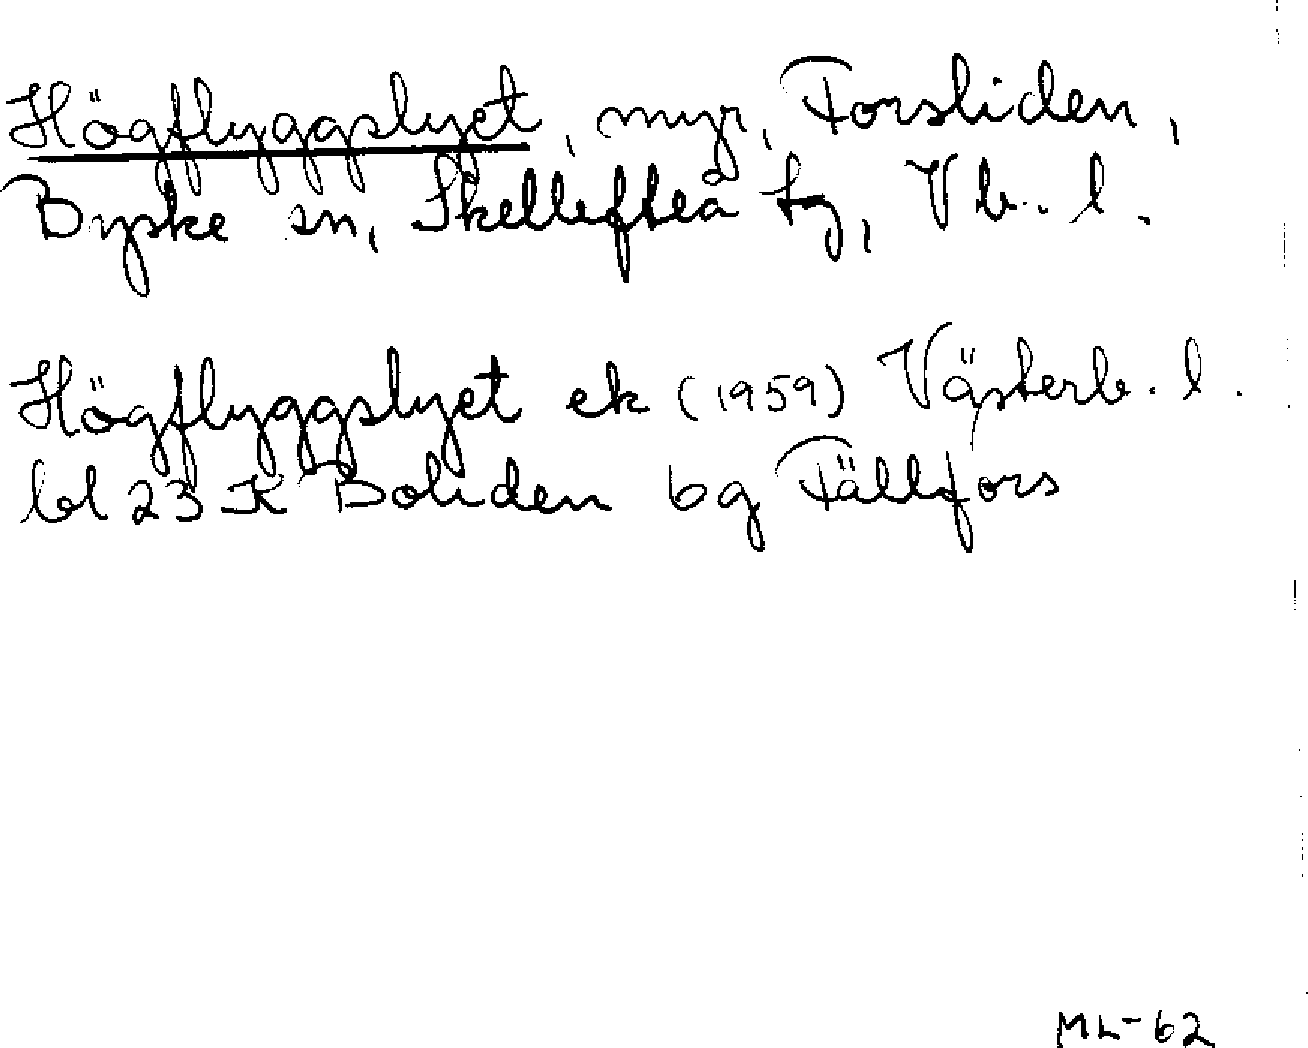 Högflyggslyet, myr, Forsliden,
Byske sn, Skellefteå tg, Vb. l.
Högflyggslyet ek (1959) Västerb. l.
bl 23 K Boliden 6g Fällfors
ML-62